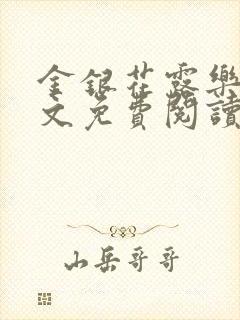 金銀花露樂
文免費閱讀
山岳哥哥